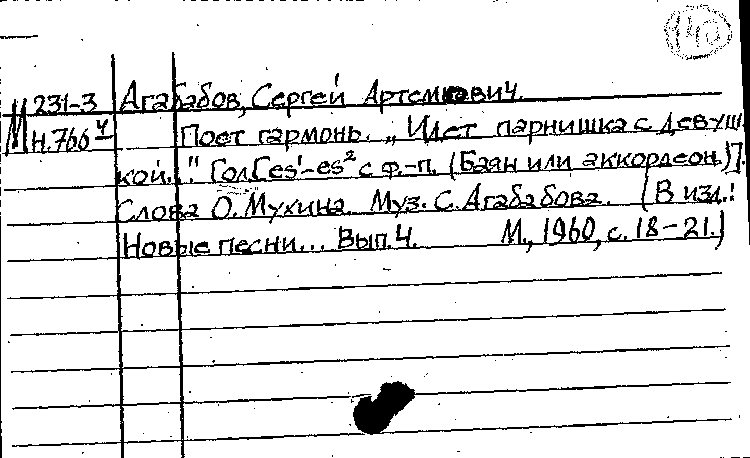 140
М 231-3 Агабабов, Сергей Артемович.
Н.766⁴ Поет гармонь. „Идет парнишка с девуш
кой..." Гол[es¹-es² с ф.-п. (Баян или аккордеон.)].
Слова О. Мухина. Муз. С. Агабабова. (В изд.:
Новые песни... Вып. 4. М., 1960, с. 18-21.)